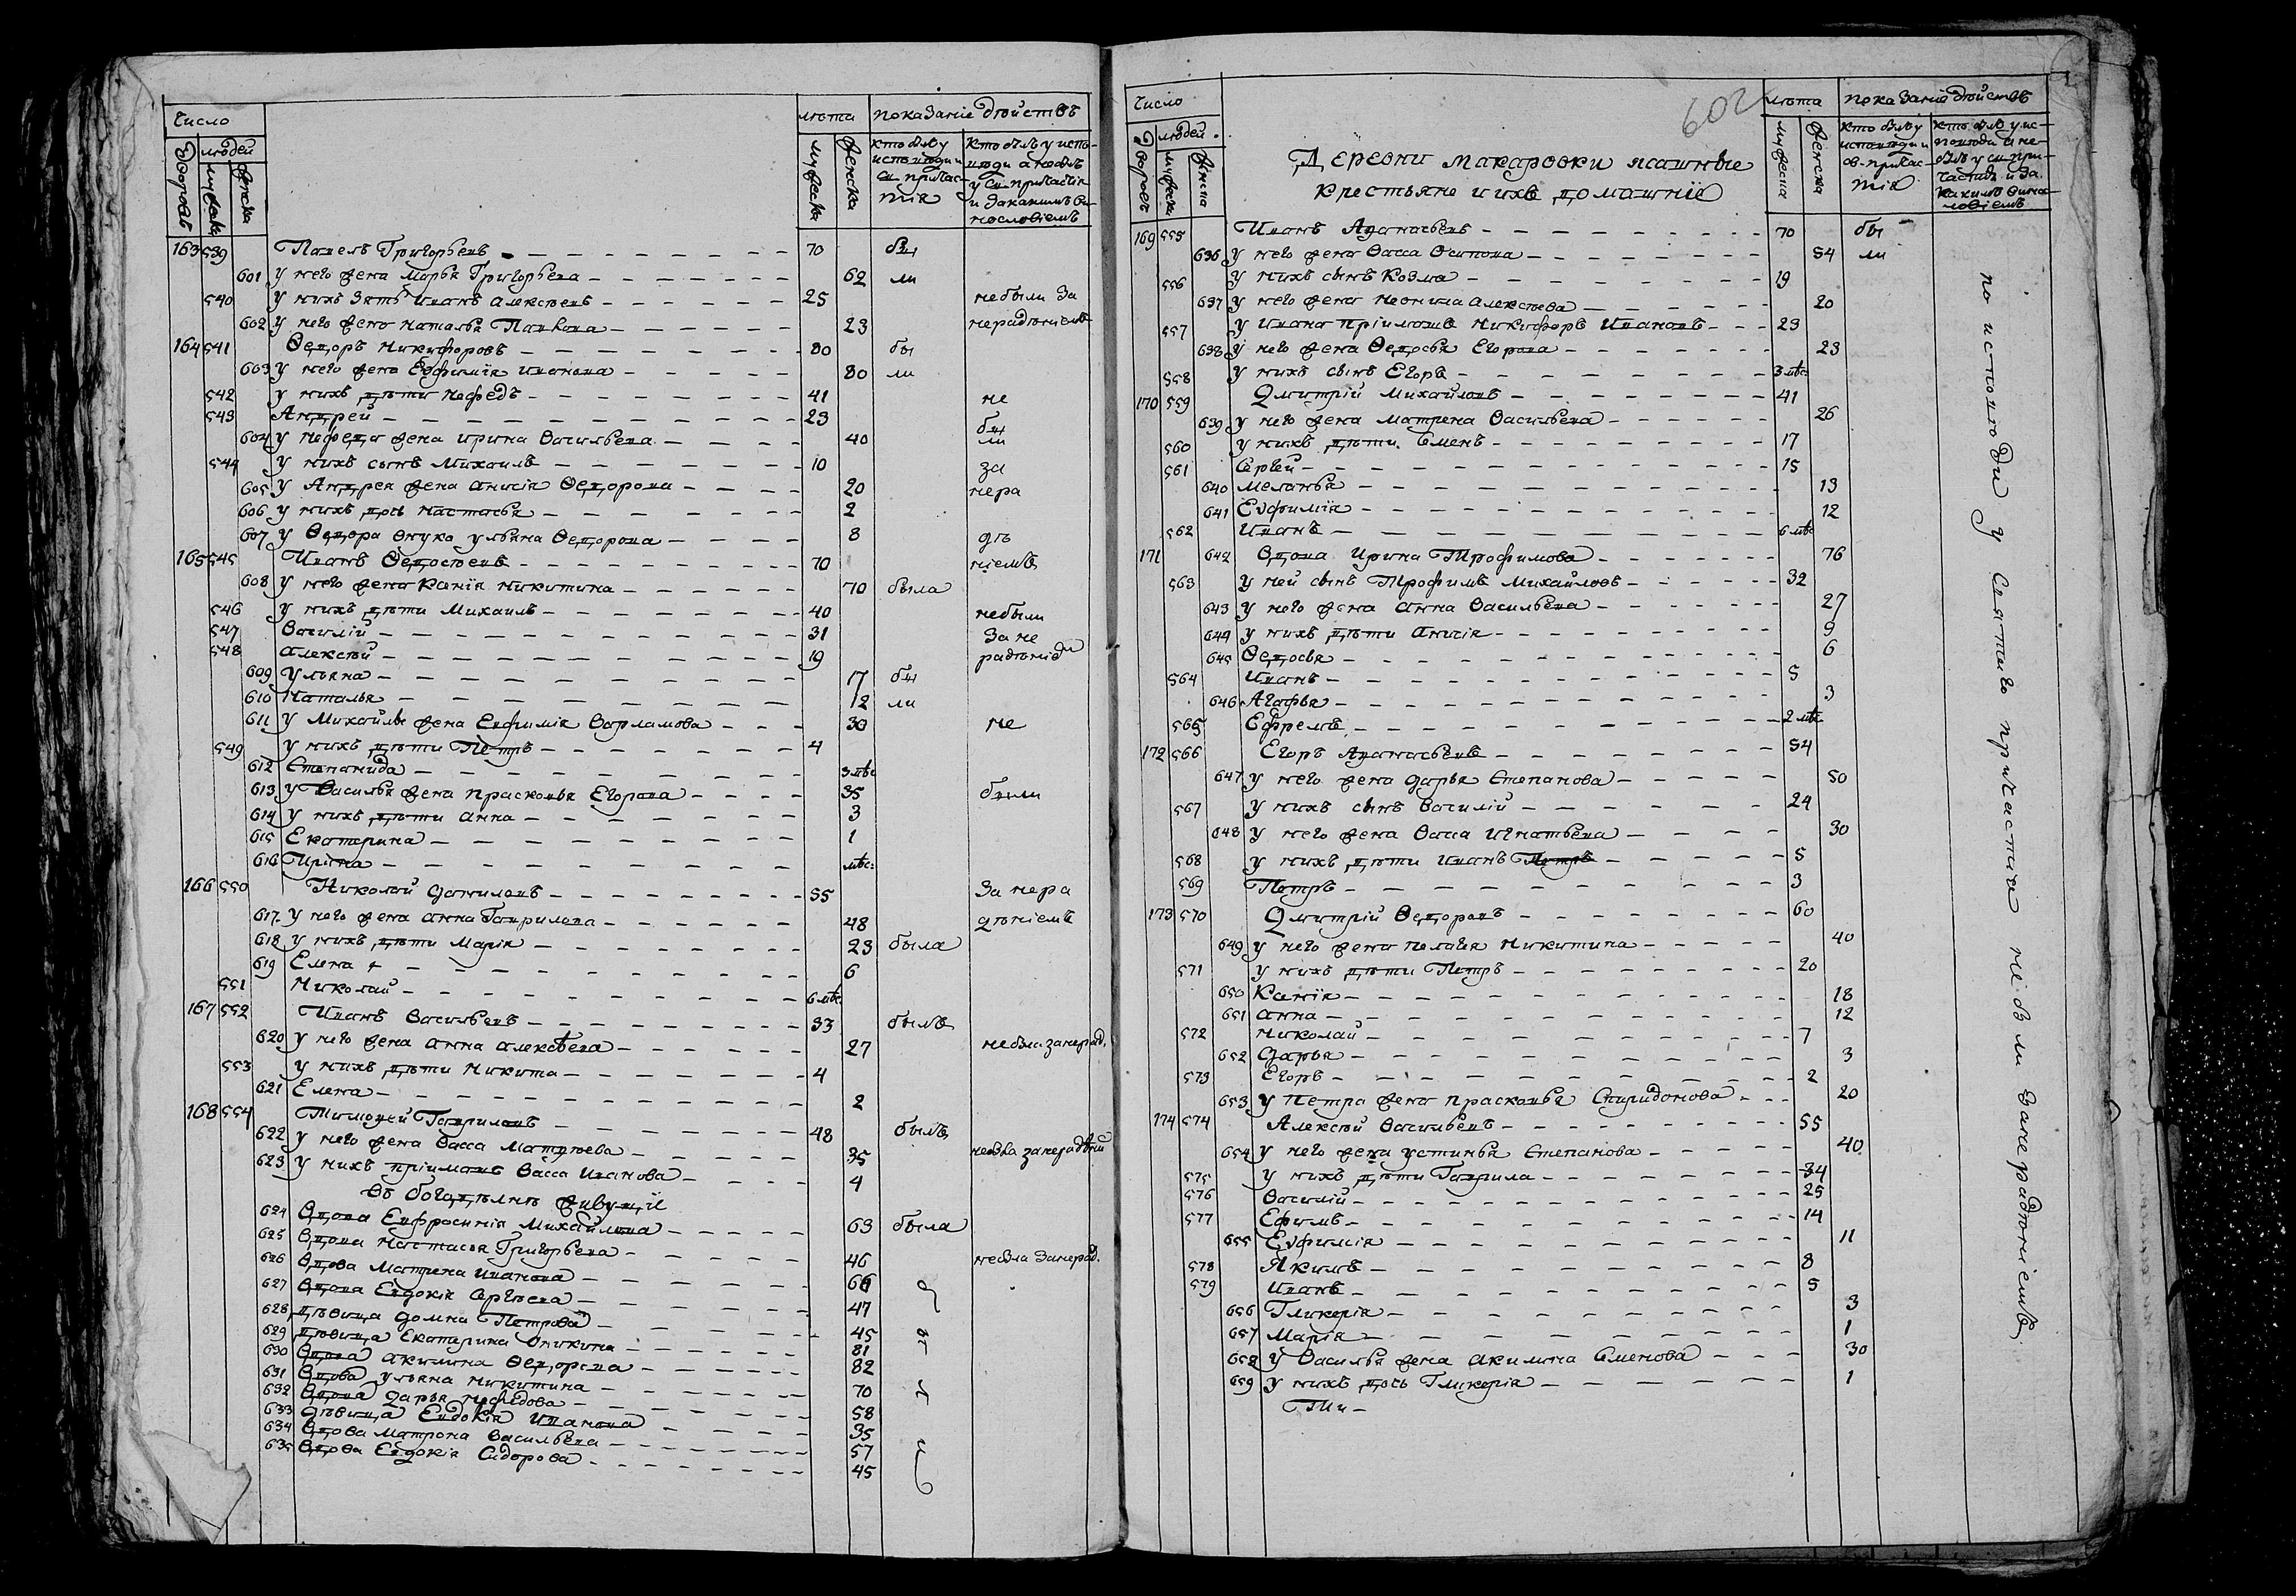 Число
лѣта показаніе дѣйствъ
людей
дворовъ мужеска женска
мужеска женска
кто былъ у исповѣди и св. причастія
кто былъ у исповѣди а небылъ у св. причастія и заканимъ винословіемъ
163 539 Павелъ Григорьевъ 70 бы
601 у него жена Марья Григорьева 62 ли
540 у нихъ зять Иванъ Алексѣевъ 25 небыли за
602 у него жена Наталья Павлова 23 нерадѣніемъ
164 541 Ѳедоръ Никифоровъ 80 бы
603 у него жена Евфимія Иванова 80 ли
542 у нихъ дѣти Нефедъ 41 не
543 Андрей 23 бы
604 у Нефеда жена Ирина Васильева 40 ли
544 у нихъ сынъ Михаилъ 10 за
605 у Андрея жена Анисія Ѳедорова 20 нера
606 у нихъ дочь Настасья 2
607 у Ѳедора внука Ульяна Ѳедорова 8 дѣ
165 545 Иванъ Ѳедосѣевъ 70 ніемъ
608 у него жена Ксенія Никитина 70 была
546 у нихъ дѣти Михаилъ 40 небыли
547 Василій 31 за не
548 Алексѣй 19 радѣніе
609 Ульяна 17 бы
610 Наталья 12 ли
611 у Михайлы жена Евфимія Варламова 30 не
549 у нихъ дѣти Петръ 4
612 Степанида 3 мѣс:
613 у Василья жена Прасковья Егорова 35 были
614 у нихъ дѣти Анна 3
615 Екатерина 1
616 Ирина мѣс:
166 550 Николай Даниловъ 55 за нера
617 у него жена Анна Гаврилова 48 дѣніемъ
618 у нихъ дѣти Марія 23 была
619 Елена 6
551 Николай 6 мѣс.
167 552 Иванъ Васильевъ 33 былъ
620 у него жена Анна Алексѣева 27 небыла занерад.
553 у нихъ дѣти Никита 4
621 Елена 2
168 554 Тимофей Гавриловъ 48 былъ
622 у него жена Васса Матѳѣева 35 небыла занерадѣній
623 у нихъ пріимышъ Васса Иванова 4
Въ богадѣльнѣ живущіе
624 Вдова Евфросинія Михайлова 63 была
625 Вдова Настасья Григорьева 46 небыла занерад.
626 Вдова Матрена Иванова 66
627 Вдова Евдокія Сергѣева 47
628 дѣвица Домна Петрова 45
629 дѣвица Екатерина Аникина 81
630 Вдова Акилина Ѳедорова 82
631 Вдова Ульяна Никитина 70
632 Вдова Дарья Нефедова 58
633 Дѣвица Евдокія Иванова 35
634 Вдова Матрона Васильева 57
635 Вдова Евдокія Сидорова 45
602
Число
лѣта показаніе дѣйствъ
людей
дворовъ мужеска женска
мужеска женска
Деревни Макаровки ясашные
крестьяне и ихъ домашніе
169 555 Иванъ Аѳанасьевъ 70 бы
636 у него жена Васса Осипова 54 ли
556 у нихъ сынъ Козма 19
637 у него жена Неонила Алексѣева 20
557 у Ивана пріимышъ Никифоръ Ивановъ 23
638 у него жена Ѳедосья Егорова 23
558 у нихъ сынъ Егоръ 3 мѣс
170 559 Дмитрій Михайловъ 41
639 у него жена Матрена Васильева 26
560 у нихъ дѣти Семенъ 17
561 Сергѣй 15
640 Меланья 13
641 Евфимія 12
562 Иванъ 6 мѣс
171 642 Вдова Ирина Трофимова 76
563 у ней сынъ Трофимъ Михайловъ 32
643 у него жена Анна Васильева 27
644 у нихъ дѣти Анисія 9
645 Ѳедосья 6
564 Иванъ 5
646 Агафья 3
565 Ефремъ 2 мѣс
172 566 Егоръ Аѳанасьевъ 54
647 у него жена Дарья Степанова 50
567 у нихъ сынъ Василій 24
648 у него жена Васса Игнатьева 30
568 у нихъ дѣти Иванъ Петръ 5
569 Петръ 3
173 570 Дмитрій Ѳедоровъ 60
649 у него жена Пелагея Никитина 40
571 у нихъ дѣти Петръ 20
650 Ксенія 18
651 Анна 12
572 Николай 7
652 Дарья 3
573 Егоръ 2
653 у Петра жена Прасковья Спиридонова 20
174 574 Алексѣй Васильевъ 55
654 у него жена Устинья Степанова 40
575 у нихъ дѣти Гаврила 34
576 Василій 25
577 Ефимъ 14
655 Евфимія 11
578 Якимъ 8
579 Иванъ 5
656 Гликерія 3
657 Марія 1
658 у Василья жена Акилина Семенова 30
659 у нихъ дочь Гликерія 1
Ти
по исповѣди у Святаго причастія не были занерадѣніемъ